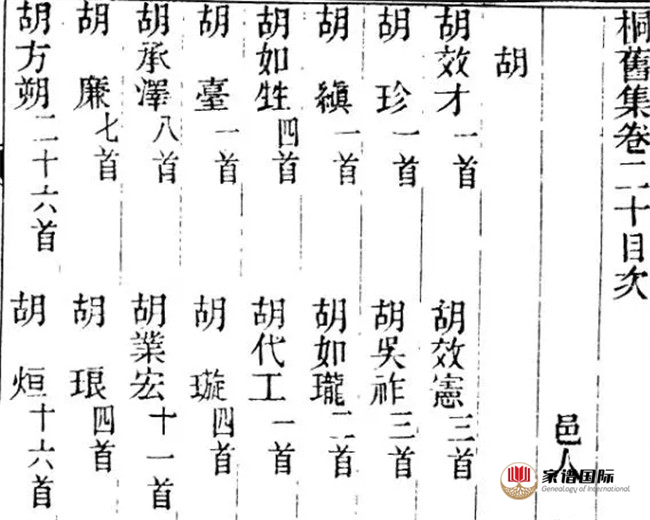 桐舊集卷二十目次
邑人
胡
胡效才一首 胡效憲三首
胡珍一首 胡吳祚三首
胡縝一首 胡如瓏二首
胡如甡四首 胡代工一首
胡臺一首 胡璇四首
胡承澤八首 胡業宏十一首
胡廉七首 胡琅四首
胡方朔二十六首 胡烜十六首
家谱国际
Genealogy of International